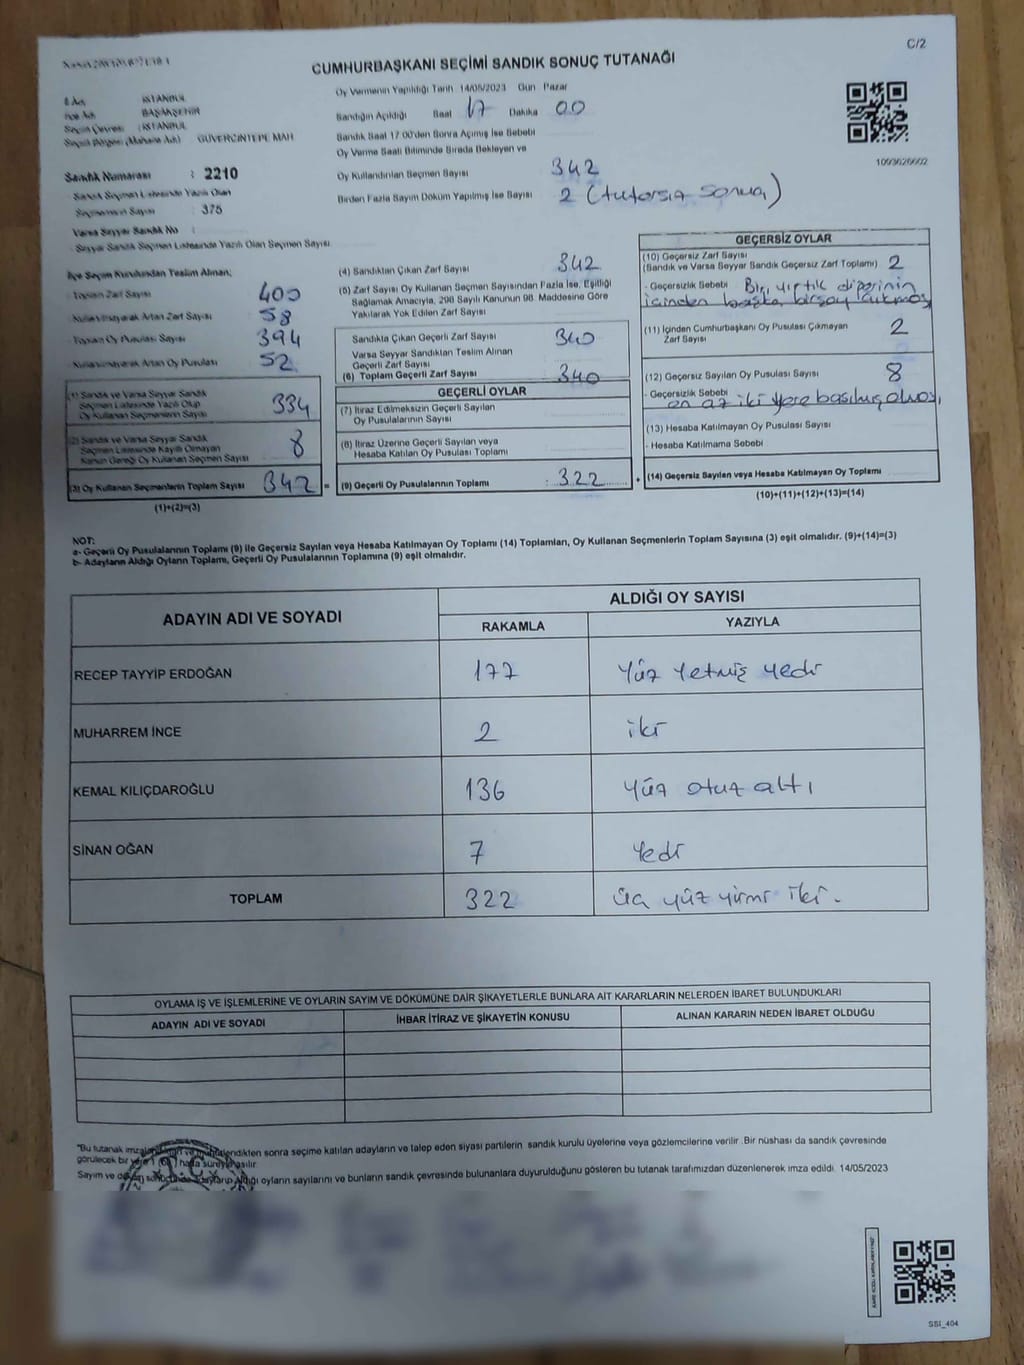 C/2
CUMHURBAŞKANI SEÇİMİ SANDIK SONUÇ TUTANAĞI
İl Adı : İSTANBUL
İlçe Adı : BAŞAKŞEHİR
Seçim Çevresi : İSTANBUL
Seçim Bölgesi (Mahalle Adı) : GÜVERCİNTEPE MAH
Sandık Numarası : 2210
Sandık Seçmen Listesinde Yazılı Olan
Seçmenlerin Sayısı : 375
Varsa Seyyar Sandık No :
Seyyar Sandık Seçmen Listesinde Yazılı Olan Seçmen Sayısı
Oy Vermenin Yapıldığı Tarih 14/05/2023 Gün Pazar
Sandığın Açıldığı Saat 17 Dakika 00
Sandık Saat 17:00'den Sonra Açılmış İse Sebebi
Oy Verme Saati Bitiminde Sırada Bekleyen ve
Oy Kullandırılan Seçmen Sayısı 342
Birden Fazla Sayım Döküm Yapılmış İse Sayısı 2 (tutarsız sonuç)
1093626602
İlçe Seçim Kurulundan Teslim Alınan;
- Toplam Zarf Sayısı 400
- Kullanılmayarak Artan Zarf Sayısı 58
- Toplam Oy Pusulası Sayısı 394
- Kullanılmayarak Artan Oy Pusulası 52
(1) Sandık ve Varsa Seyyar Sandık
Seçmen Listesinde Yazılı Olup
Oy Kullanan Seçmenlerin Sayısı 334
(2) Sandık ve Varsa Seyyar Sandık
Seçmen Listesinde Kayıtlı Olmayan
Kanun Gereği Oy Kullanan Seçmen Sayısı 8
(3) Oy Kullanan Seçmenlerin Toplam Sayısı 342 =
(1)+(2)=(3)
(4) Sandıktan Çıkan Zarf Sayısı 342
(5) Zarf Sayısı Oy Kullanan Seçmen Sayısından Fazla İse, Eşitliği
Sağlamak Amacıyla, 298 Sayılı Kanunun 98. Maddesine Göre
Yakılarak Yok Edilen Zarf Sayısı
Sandıkta Çıkan Geçerli Zarf Sayısı 340
Varsa Seyyar Sandıktan Teslim Alınan
Geçerli Zarf Sayısı
(6) Toplam Geçerli Zarf Sayısı 340
GEÇERLİ OYLAR
(7) İtiraz Edilmeksizin Geçerli Sayılan
Oy Pusulasının Sayısı
(8) İtiraz Üzerine Geçerli Sayılan veya
Hesaba Katılan Oy Pusulası Toplamı
(9) Geçerli Oy Pusulalarının Toplamı : 322 +
GEÇERSİZ OYLAR
(10) Geçersiz Zarf Sayısı
(Sandık ve Varsa Seyyar Sandık Geçersiz Zarf Toplamı) 2
- Geçersizlik Sebebi Biri yırtık diğerinin
içinden başka birşey çıkmış
(11) İçinden Cumhurbaşkanı Oy Pusulası Çıkmayan
Zarf Sayısı 2
(12) Geçersiz Sayılan Oy Pusulası Sayısı 8
- Geçersizlik Sebebi en az iki yere basılmış olması
(13) Hesaba Katılmayan Oy Pusulası Sayısı
- Hesaba Katılmama Sebebi
(14) Geçersiz Sayılan veya Hesaba Katılmayan Oy Toplamı
(10)+(11)+(12)+(13)=(14)
NOT:
a- Geçerli Oy Pusulalarının Toplamı (9) ile Geçersiz Sayılan veya Hesaba Katılmayan Oy Toplamı (14) Toplamları, Oy Kullanan Seçmenlerin Toplam Sayısına (3) eşit olmalıdır. (9)+(14)=(3)
b- Adayların Aldığı Oyların Toplamı, Geçerli Oy Pusulalarının Toplamına (9) eşit olmalıdır.
ADAYIN ADI VE SOYADI
ALDIĞI OY SAYISI
RAKAMLA YAZIYLA
RECEP TAYYİP ERDOĞAN 177 Yüz Yetmiş yedi
MUHARREM İNCE 2 iki
KEMAL KILIÇDAROĞLU 136 yüz otuz altı
SİNAN OĞAN 7 Yedi
TOPLAM 322 üç yüz yirmi iki.
OYLAMA İŞ VE İŞLEMLERİNE VE OYLARIN SAYIM VE DÖKÜMÜNE DAİR ŞİKAYETLERLE BUNLARA AİT KARARLARIN NELERDEN İBARET BULUNDUKLARI
ADAYIN ADI VE SOYADI İHBAR İTİRAZ VE ŞİKAYETİN KONUSU ALINAN KARARIN NEDEN İBARET OLDUĞU
*Bu tutanak imzalanıp ve mühürlendikten sonra seçime katılan adayların ve talep eden siyasi partilerin sandık kurulu üyelerine veya gözlemcilerine verilir. Bir nüshası da sandık çevresinde
görülecek bir yere 1 hafta süreyle asılır
Sayım ve döküm sonucunda adayların aldığı oyların sayılarını ve bunların sandık çevresinde bulunanlara duyurulduğunu gösteren bu tutanak tarafımızdan düzenlenerek imza edildi. 14/05/2023
T.C.
SSI_404